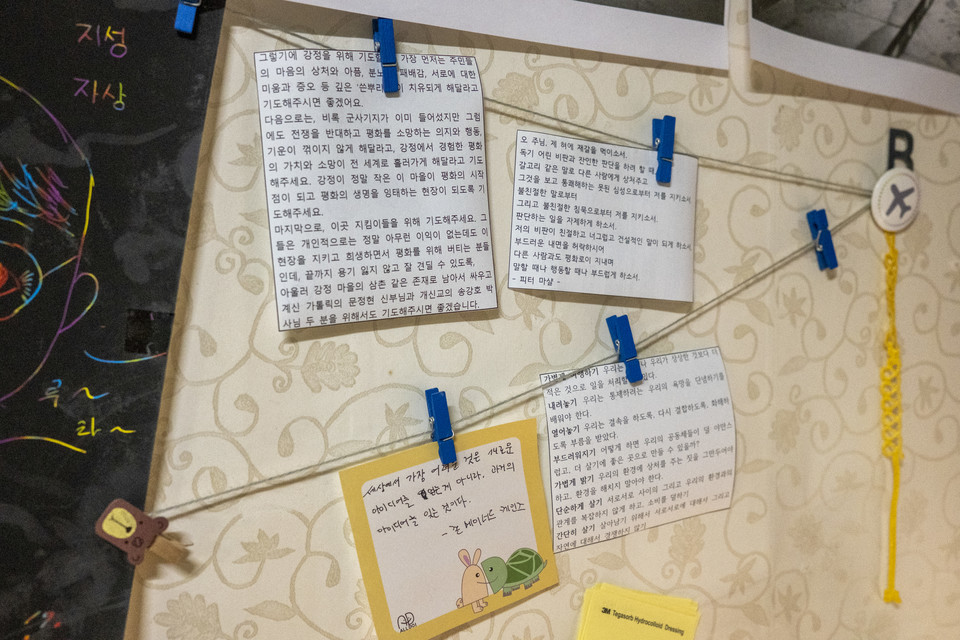 지성
자상
루~
라~
그렇기에 강정을 위해 기도할 가장 먼저는 주민들
의 마음의 상처와 아픔, 분노 패배감, 서로에 대한
미움과 증오 등 깊은 '쓴뿌리 이 치유되게 해달라고
기도해주시면 좋겠어요.
다음으로는, 비록 군사기지가 이미 들어섰지만 그럼
에도 전쟁을 반대하고 평화를 소망하는 의지와 행동,
기운이 꺾이지 않게 해달라고, 강정에서 경험한 평화
의 가치와 소망이 전 세계로 흘러가게 해달라고 기도
해주세요. 강정이 정말 작은 이 마을이 평화의 시작
점이 되고 평화의 생명을 잉태하는 현장이 되도록 기
도해주세요.
마지막으로, 이곳 지킴이들을 위해 기도해주세요. 그
들은 개인적으로는 정말 아무런 이익이 없는데도 이
현장을 지키고 희생하면서 평화를 위해 버티는 분들
인데, 끝까지 용기 잃지 않고 잘 견딜 수 있도록,
아울러 강정 마을의 삼촌 같은 존재로 남아서 싸우고
계신 가톨릭의 문정현 신부님과 개신교의 송강호 박
사님 두 분을 위해서도 기도해주시면 좋겠습니다.
오 주님, 제 혀에 재갈을 먹이소서.
독기 어린 비판과 잔인한 판단을 하려 할 때
갈고리 같은 말로 다른 사람에게 상처주고
그것을 보고 통쾌해하는 못된 심성으로부터 저를 지키소서
불친절한 말로부터
그리고 불친절한 침묵으로부터 저를 지키소서.
판단하는 일을 자제하게 하소서.
저의 비판이 친절하고 너그럽고 건설적인 말이 되게 하소서
부드러운 내면을 허락하시어
다른 사람과도 평화로이 지내며
말할 때나 행동할 때나 부드럽게 하소서.
- 피터 마샬 -
B
우리는 우리가 상상한 것보다 더
적은 것으로 일을 처리할
내려놓기 우리는 통제하려는 우리의 욕망을 단념하기를
배워야 한다.
열어놓기 우리는 결속을 하도록, 다시 결합하도록, 화해하
도록 부름을 받았다.
부드러워지기 어떻게 하면 우리의 공동체들이 덜 야만스
럽고, 더 살기에 좋은 곳으로 만들 수 있을까?
가볍게 밟기 우리의 환경에 상처를 주는 짓을 그만두어야
하고, 환경을 해치지 말아야 한다.
단순하게 살기 서로서로 사이의 그리고 우리의 환경과의
관계를 복잡하지 않게 하고, 소비를 덜하기
간단히 살기 살아남기 위해서 서로서로에 대해서 그리고
자연에 대해서 경쟁하지 않기
세상에서 가장 어려운 것은 새로운
아이디어를 얻는게 아니라, 과거의
아이디어를 잊는 것이다.
- 존 메이너드 케인즈
ALLBOI
3M Tegasorb Hydrocolloid Dressing